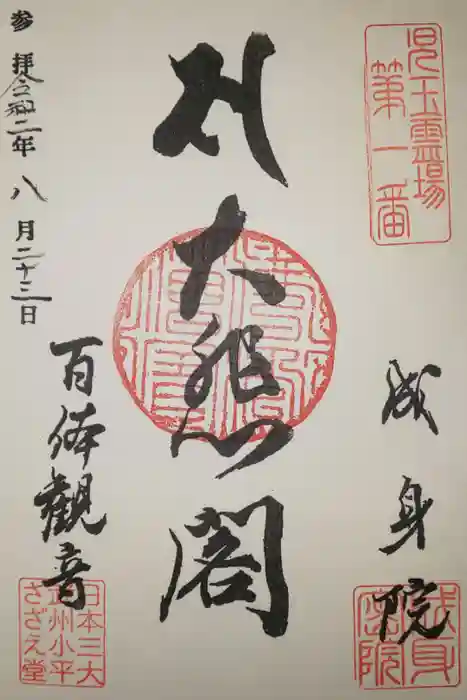 児玉霊場
第一番
成身院
成身院
大悲閣
百体観音
日本三大
武州小平
さざえ堂
参拝令和二年八月二十三日